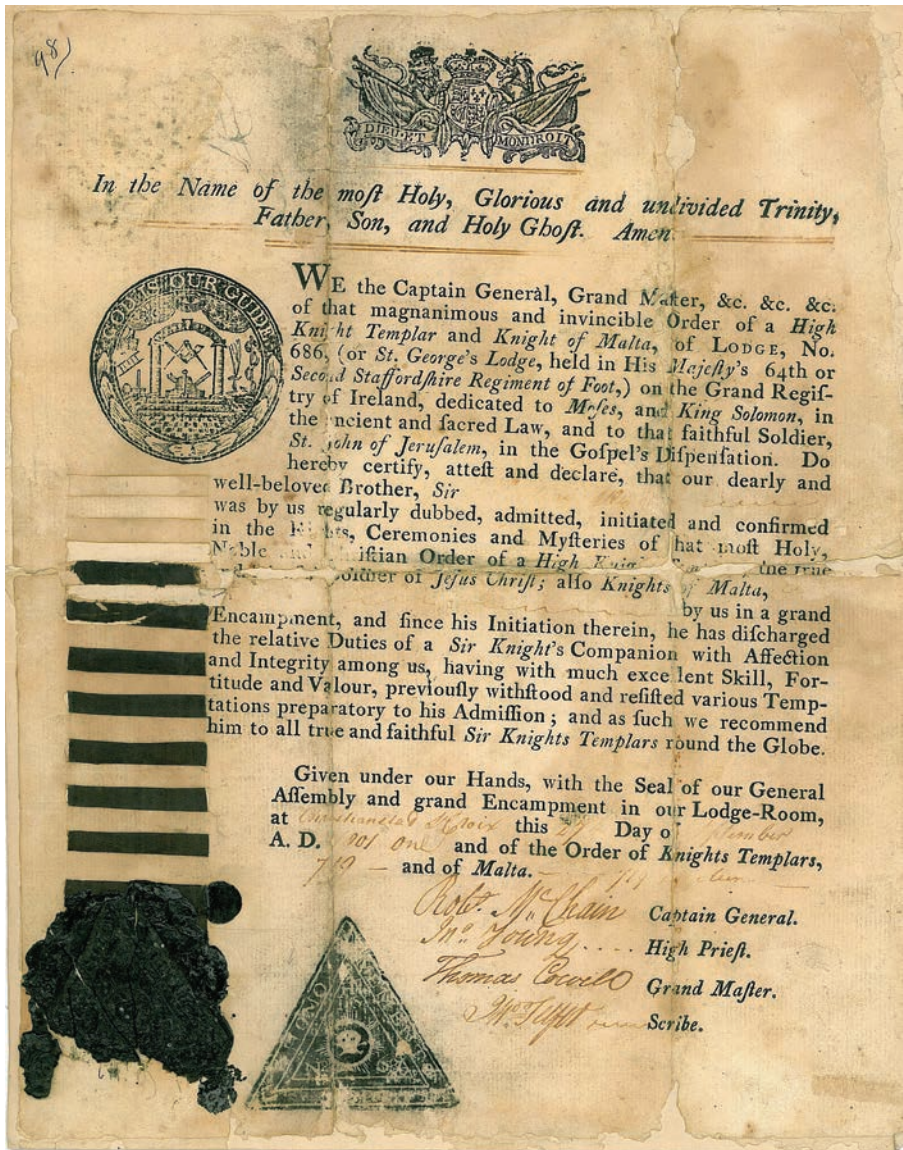 98)
DIEU ET MON DROIT
In the Name of the moſt Holy, Glorious and undivided Trinity,
Father, Son, and Holy Ghoſt. Amen.
GOD IS OUR GUIDE
WE the Captain General, Grand Maſter, &c. &c. &c.
of that magnanimous and invincible Order of a High
Knight Templar and Knight of Malta, of LODGE, No.
686, (or St. George's Lodge, held in His Majeſty's 64th or
Second Staffordſhire Regiment of Foot,) on the Grand Regiſ-
try of Ireland, dedicated to Moſes, and King Solomon, in
the ancient and ſacred Law, and to that faithful Soldier,
St. John of Jeruſalem, in the Goſpel's Diſpenſation. Do
hereby certify, atteſt and declare, that our dearly and
well-beloved Brother, Sir
was by us regularly dubbed, admitted, initiated and confirmed
in the Rights, Ceremonies and Myſteries of that moſt Holy,
Noble and Chriſtian Order of a High the true
Soldier of Jeſus Chriſt; alſo Knights of Malta,
by us in a grand
Encampment, and ſince his Initiation therein, he has diſcharged
the relative Duties of a Sir Knight's Companion with Affection
and Integrity among us, having with much excellent Skill, For-
titude and Valour, previouſly withſtood and reſiſted various Temp-
tations preparatory to his Admiſſion; and as ſuch we recommend
him to all true and faithful Sir Knights Templars round the Globe.
Given under our Hands, with the Seal of our General
Aſſembly and grand Encampment in our Lodge-Room,
at St Croix this Day of
A. D. 801 one and of the Order of Knights Templars,
— and of Malta. —
Robt. McChain Captain General.
Jno. Young.... High Prieſt.
Thomas Grand Maſter.
Scribe.